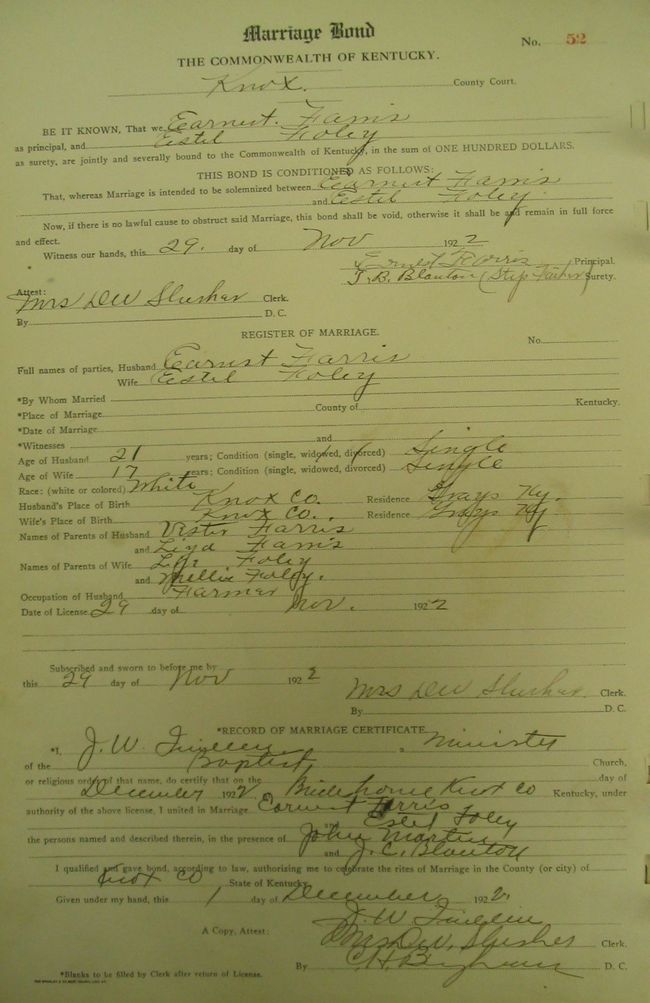 Marriage Bond
No. 52
THE COMMONWEALTH OF KENTUCKY.
Knox. County Court.
BE IT KNOWN, That we Earnest Farris
as principal, and Estil Foley
as surety, are jointly and severally bound to the Commonwealth of Kentucky, in the sum of ONE HUNDRED DOLLARS.
THIS BOND IS CONDITIONED AS FOLLOWS:
That, whereas Marriage is intended to be solemnized between Earnest Farris
and Estil Foley.
Now, if there is no lawful cause to obstruct said Marriage, this bond shall be void, otherwise it shall be and remain in full force
and effect.
Witness our hands, this 29. day of Nov 1922
Ernest Farris Principal.
J. B. Blanton (Step Father) Surety.
Attest:
Mrs D W Slusher Clerk.
By D. C.
REGISTER OF MARRIAGE.
No.
Full names of parties, Husband Earnest Farris
Wife Estil Foley
*By Whom Married
*Place of Marriage County of Kentucky.
*Date of Marriage
*Witnesses and
Age of Husband 21 years; Condition (single, widowed, divorced) Single
Age of Wife 17 years; Condition (single, widowed, divorced) Single
Race: (white or colored) White
Husband's Place of Birth Knox Co. Residence Grays Ky.
Wife's Place of Birth Knox Co. Residence Grays Ky
Names of Parents of Husband Vister Farris
and Farris
Names of Parents of Wife Foley
and Mellie Foley.
Occupation of Husband Farmer
Date of License 29 day of Nov. 1922
Subscribed and sworn to before me by
this 29 day of Nov 1922
Mrs D W Slusher Clerk.
By D. C.
*RECORD OF MARRIAGE CERTIFICATE
*I, J. W. a Minister
of the Baptist Church,
or religious order of that name, do certify that on the day of
December 1922 Bride home Knox Co Kentucky, under
authority of the above license, I united in Marriage Earnest Farris
and Estel Foley
the persons named and described therein, in the presence of John Martin
and J. C. Blanton
I qualified and gave bond, according to law, authorizing me to celebrate the rites of Marriage in the County (or city) of
Knox Co State of Kentucky
Given under my hand, this 1 day of December 1922.
J. W.
A Copy, Attest: Mrs D. W. Slusher Clerk.
By C. H. D. C.
*Blanks to be filled by Clerk after return of License.